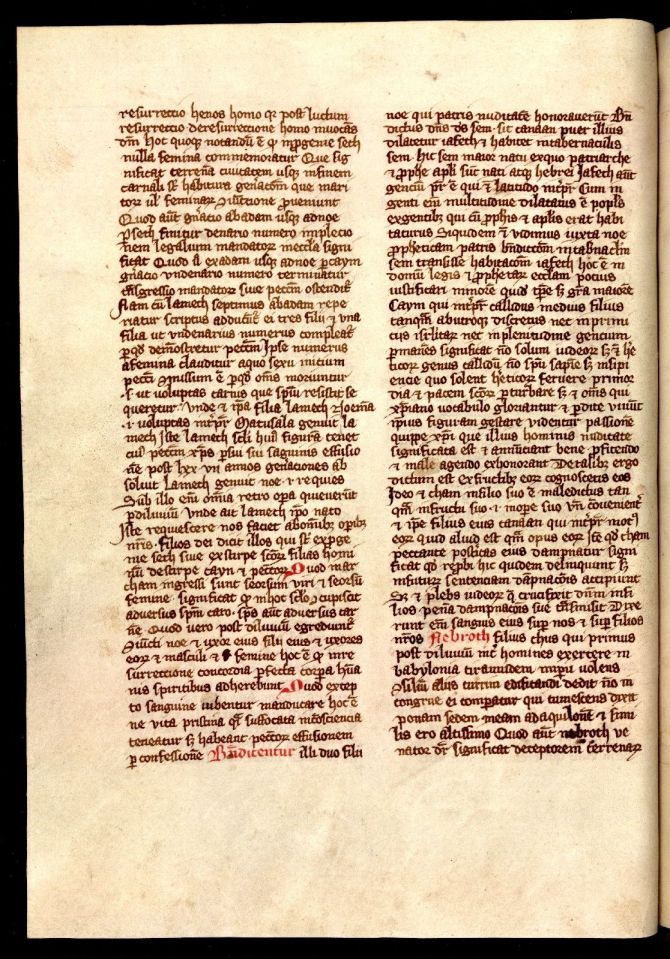 resurrectio henos homo qr post luctum
resurrectio de resurrectione homo inuocās
dm̄ hoc quoq; notandū ē q̄ in p̄genie seth
nulla femina commemoratur Que sig
nificat terrenā ciuitatem usq; in finem
carnali sr̄ habitura gn̄acōm que mari
tor ul' feminar ꝯiūctione ꝓueniunt
Quod aūt gn̄acio ab adam usq; ad noe
ꝑ seth finitur denario numero implecio
nem legalium mandator in eccl'a signi
ficat Quod ex adam usq; ad noe ꝑ caym
gn̄acio undenario numero terminatur
tn̄sgressio mandator siue pecc̄m ostendit'
Nam cū lamech septimus ab adam repe
riatur scriptus adduc̄t' ei tres filii ⁊ una
filia ut undenarius numerus compleat'
ꝑ q̄ demōstretur pecc̄m Ipse numerus
a femina clauditur a quo sexu inicium
pecc̄i ꝯmissum ē ꝑ qd̄ om̄s moriuntur
.s. ut uoluptas carnis que sp̄ui resistit se
queretur unde ⁊ ip̄a filia lamech Noema
.i. uoluptas int̄pr̄ Matusala genuit la
mech Iste lamech sc̄li huī figurā tenet
cui' pecc̄m xp̄s ꝑ sui sanguinis effusio
nē post lxx vii annos gn̄aciones ab
soluit Lamech genuit noe .i. requies
Sub illo enī om̄ia retro opa quieuerūt
ꝑ diluuiū unde ait lamech ip̄o nato
Iste requiescere nos faciet ab om̄ib; opib;
nr̄is. filios dei dicit illos qui sr̄ ex ꝓge
nie seth siue ex stirpe sc̄or filias homi
nū de stirpe cayn ⁊ pecc̄or Quod in ar
cham ingressi sunt seorsum uiri ⁊ seorsū
femine significat q̄ in hoc sc̄lo ꝯcupiscit
aduersus sp̄m caro. sp̄s aūt aduersus car
nē Quod uero post diluuiū egrediunt'
ꝯiūcti noe ⁊ uxor eius filii eius ⁊ uxores
eor ⁊ masculi ⁊ femine hoc ē q̄ in re
surrectione concordia ꝑfecta corpa hūa
nis spiritibus adherebunt Quod excep
to sanguine iubentur manducare hoc ē
ne uita pristina q̄ suffocata in cōsciencia
teneatur s; habeant pecc̄or effusionem
ꝑ confessionē Bn̄dicentur illi duo filii
noe qui patris nuditatē honorauerūt Bn̄
dictus dn̄s ds̄ sem. sit canaan puer illius
dilatetur iafeth ⁊ habitet in tabernaculis
sem. hic sem maior natu ex quo patriarche
⁊ ꝓphe apl'i sūt nati atq; hebrei Iafeth aūt
genciū pr̄ ē qui ⁊ latitudo int̄pr̄ Cum in
genti enī multitudine dilatatus ē popl's
ex gentib; qui cū ꝓphis ⁊ apl'is erat habi
taturus Siquidem ⁊ uidimus iuxta noe
ꝓpheticam patris bn̄dictōm in tabnac'lm
sem transisse habitacōm iafeth hoc ē in
domū legis ⁊ ꝓphetar eccl'am pocius
iustificari minorē quod tꝑe s; gr̄a maiorē
Caym qui int̄pr̄ callidus medius filius
tanq̄m ab utroq; discretus nec in primi
ciis isrl'itar nec in plenitudine gencium
ꝑmanēs significat nō solum iudeor s; ⁊ he
ticor genus callidū nō sp̄u sapiē s; insipi
encie quo solent heticor feruere primor
dia ⁊ pacem sc̄or ꝑturbare s; ⁊ om̄s qui
xp̄iano uocabulo gloriantur ⁊ ꝑdite uiuūt
ip̄ius figuram gestare uidentur passionē
quippe xp̄i que illius hominis nuditate
significata est ⁊ annūciant bene ꝓfitendo
⁊ male agendo exhonorant De talib; ergo
dictum est ex fructib; eor cognoscetis eos
Ideo ⁊ cham in filio suo ē maledictus tan
q̄m in fructu suo .i. in ope suo un̄ conuenient'
⁊ ip̄e filius eius canaan qui int̄pr̄ mot'
eor quid aliud est q̄m opus eor
peccante posteritas eius dampnatur signi
ficat qd̄ reꝓbi hic quidem delinquunt s;
in futur sentenciam dāpnacōis accipiunt
Sic ⁊ plebs iudeor q̄ crucifixit dn̄m in fi
lios penā dampnacōis sue tn̄smisit Dixe
runt enī sanguis eius suꝑ nos ⁊ suꝑ filios
nr̄os Nebroth filius chus qui primus
post diluuiū int̄ homines exercere in
babylonia tirannidem in pp̄l'm uolens
ꝯsiliū aliis turrim edificandi dedit nō in
congrue ei comparatur qui tumescens dixit
ponam sedem meam ad aquilonē ⁊ simi
lis ero altissimo Quod aūt nebroth ue
nator dr̄ significat deceptorem terrenar